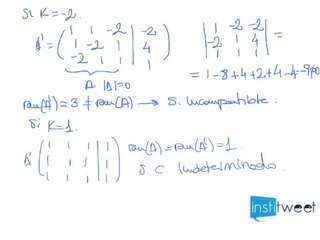 Si K=-2.
A' = ( 1 1 -2 | -2
1 -2 1 | 4
-2 1 1 | 1 )
A |A|=0
| 1 -2 -2
-2 1 4
1 1 1 | =
= 1-8+4+2+4-4-9≠0
ran(A')=3 ≠ ran(A) → S. Incompatible.
Si K=1.
A' ( 1 1 1 | 1
1 1 1 | 1
1 1 1 | 1 )
ran(A) = ran(A') = 1
S. C Indeterminado.
institweet